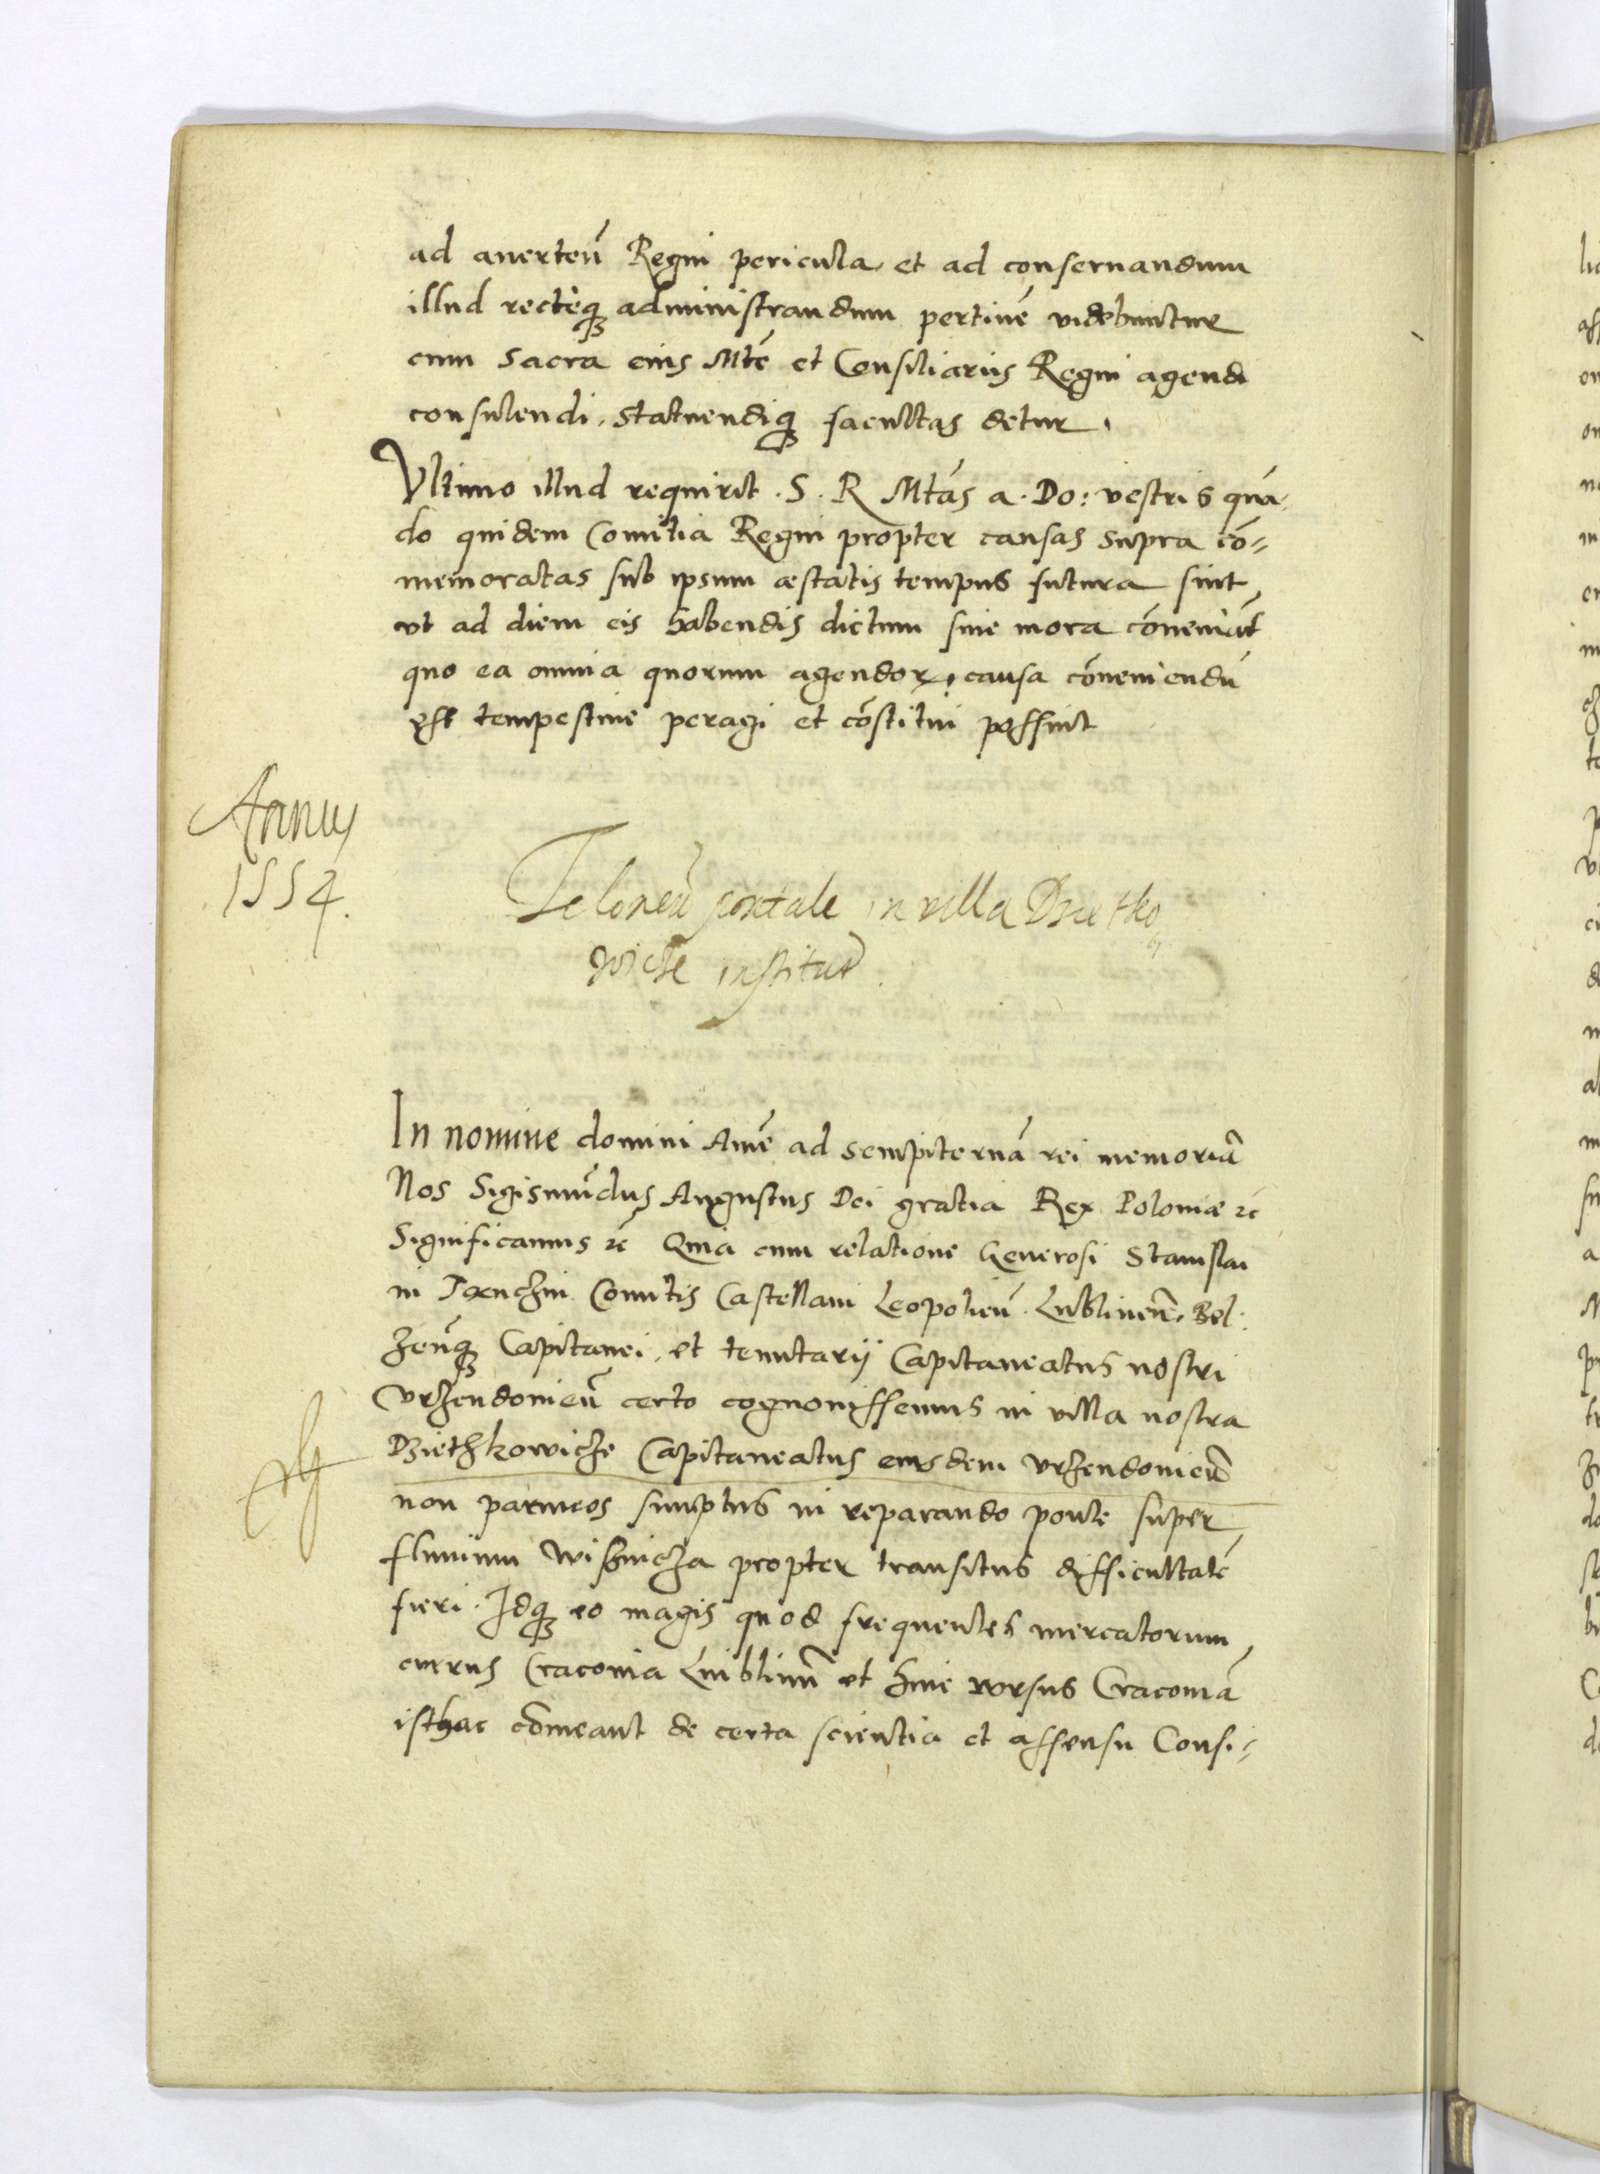 ad auerteñ Regni pericula et ad conseruandum
illud recteq₃ administrandum pertinē videbuntur
cum Sacra eius Mtē et Consiliariis Regni agendi
consulendi, statuendiq₃ facultas detur.
Vltimo illud requirit. S. R Mtas a. Do: vestris quā
do quidem Comitia Regni propter causas supra cō=
memoratas sub ipsum æstatis tempus futura sint,
vt ad diem eis habendis dictum sine mora cōueniāt
quo ea omnia quorum agendor. causa cōueniendū
est tempestiue peragi et cōstitui possint
Annus
1554.
Teloneū pontale in villa Dzietko
wicze instituit.
In nomine domini Amē ad sempiternā rei memoriā
Nos Sigismūdus Augustus Dei gratia Rex Poloniæ &c
Significamus &c Quia cum relatione Generosi Stanislai
in Tænczin Comitis Castellani Leopolieñ. Lublineñ. Bel:
zeñq₃ Capitanei, et tenutarij Capitaneatus nostri
Vrzendouieñ certo cognouissemus in villa nostra
Dziethkowicze Capitaneatus eiusdem Vrzendouieñ
non paruos sumptus in reparando ponte super
fluuium Wisznicza propter transitus difficultatē
fieri. Idq₃ eo magis quod frequentes mercatorum
currus Cracouia Lublinū et hinc rursus Cracouiā
isthac cōmeant de certa scientia et assensu Consi=